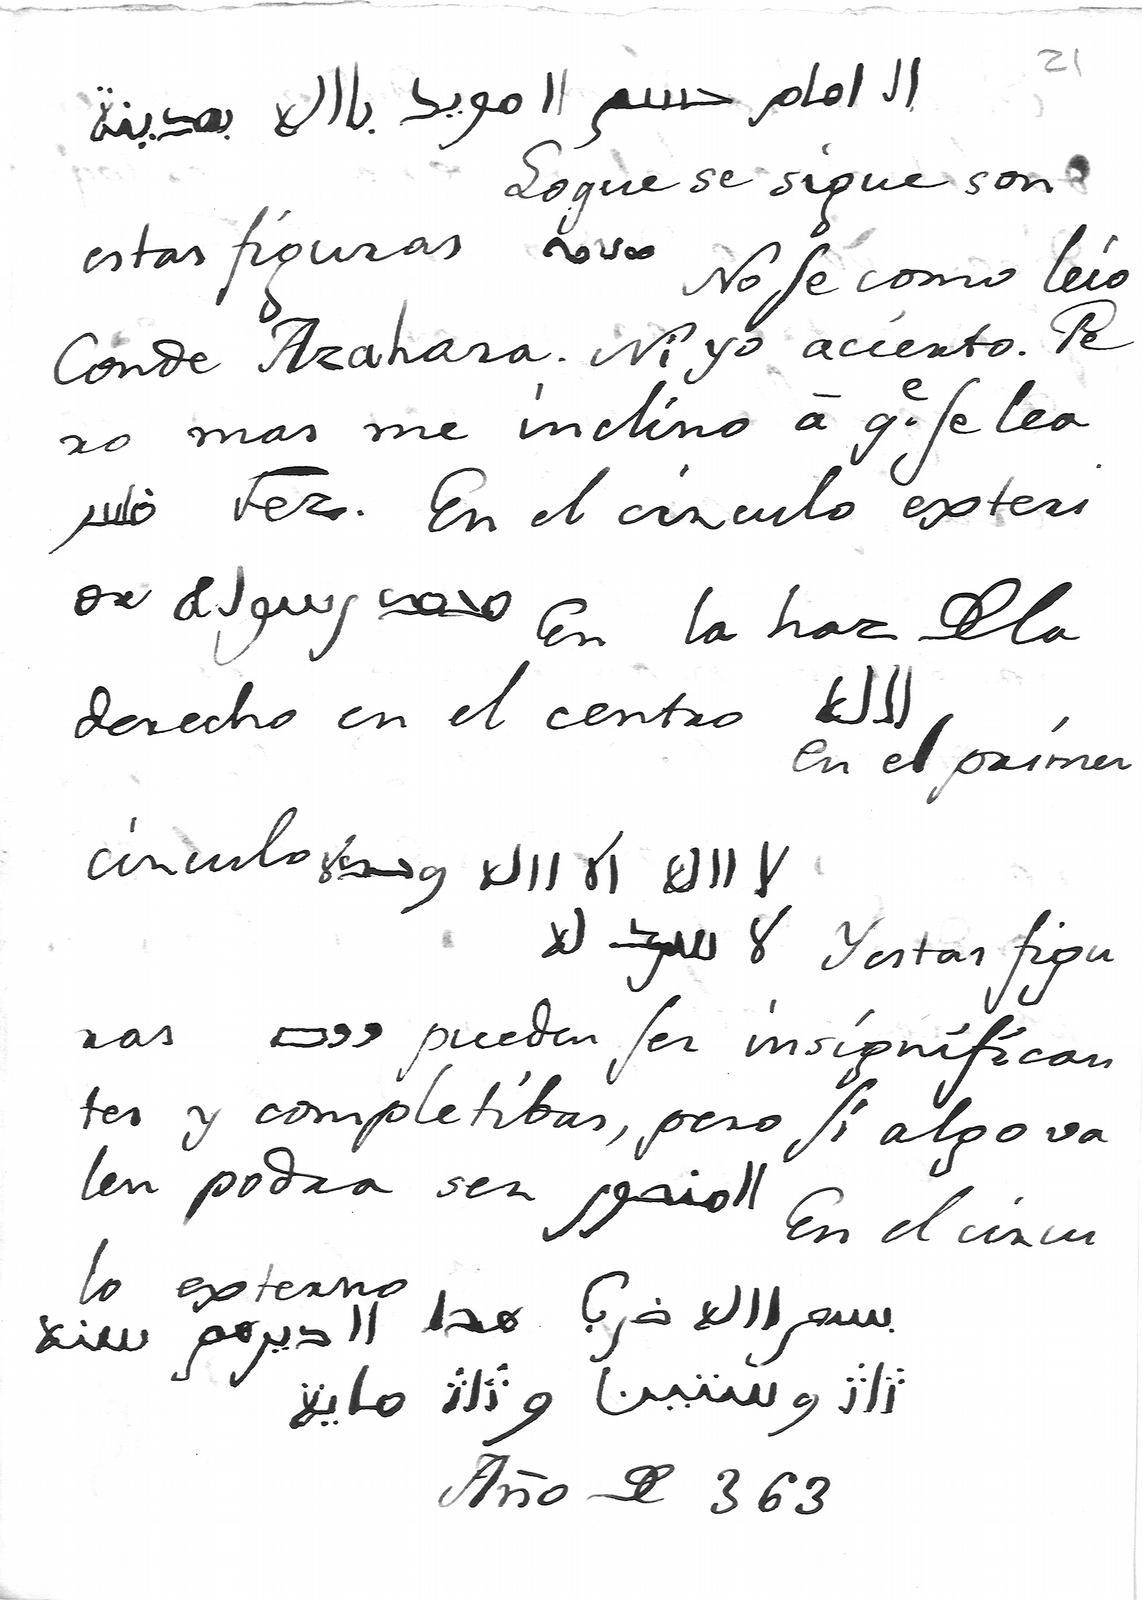 21
الامام حسم المويد باالله بمدينة
Loque se sigue son
estas figuras
No se como leió
Conde Azahara. Ni yo acierto. Pe
ro mas me inclino â q.e se lea
فاس Fez. En el circulo exteri
or رسول En la haz De la
derecho en el centro الله
en el primer
circulo لا االله الا االله وحده
لا سريك له Y estas figu
ras pueden ser insignifican
tes y completibas, pero si algo va
len podra ser المنصور En el circu
lo externo
بسم االله ضرب هدا الديرهم سنة
ثلاث وستين وثلاث ماية
Año De 363